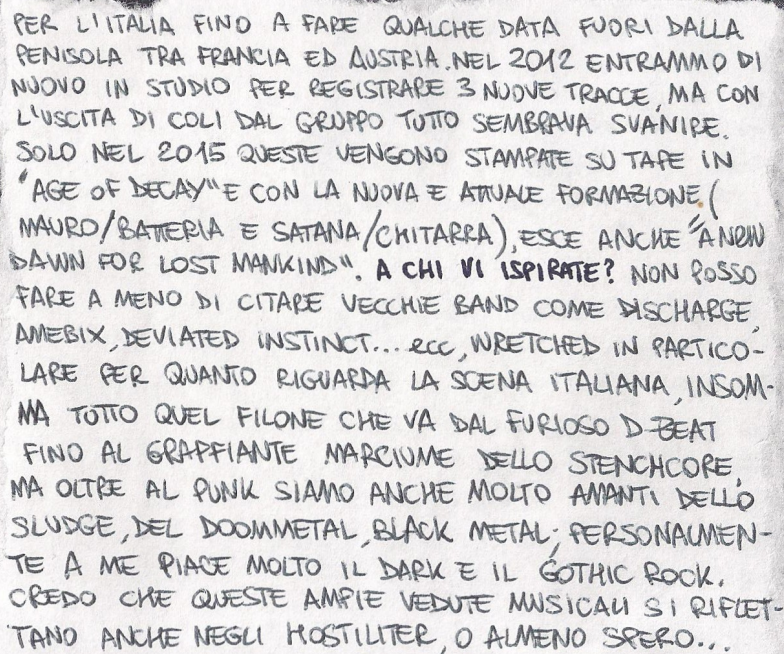 PER L'ITALIA FINO A FARE QUALCHE DATA FUORI DALLA
PENISOLA TRA FRANCIA ED AUSTRIA. NEL 2012 ENTRAMMO DI
NUOVO IN STUDIO PER REGISTRARE 3 NUOVE TRACCE, MA CON
L'USCITA DI COLI DAL GRUPPO TUTTO SEMBRAVA SVANIRE.
SOLO NEL 2015 QUESTE VENGONO STAMPATE SU TAPE IN
"AGE OF DECAY" E CON LA NUOVA E ATTUALE FORMAZIONE (
MAURO/BATTERIA E SATANA/CHITARRA), ESCE ANCHE "A NEW
DAWN FOR LOST MANKIND". A CHI VI ISPIRATE? NON POSSO
FARE A MENO DI CITARE VECCHIE BAND COME DISCHARGE,
AMEBIX, DEVIATED INSTINCT... ecc, WRETCHED IN PARTICO-
LARE PER QUANTO RIGUARDA LA SCENA ITALIANA, INSOM-
MA TUTTO QUEL FILONE CHE VA DAL FURIOSO D-BEAT
FINO AL GRAFFIANTE MARCIUME DELLO STENCHCORE,
MA OLTRE AL PUNK SIAMO ANCHE MOLTO AMANTI DELLO
SLUDGE, DEL DOOMMETAL, BLACK METAL; PERSONALMEN-
TE A ME PIACE MOLTO IL DARK E IL GOTHIC ROCK.
CREDO CHE QUESTE AMPIE VEDUTE MUSICALI SI RIFLET-
TANO ANCHE NEGLI HOSTILITER, O ALMENO SPERO...